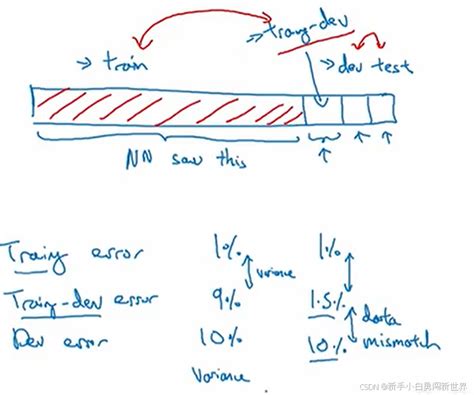 → train
→ traing-dev
→ dev test
NN saw this
Traing error 1% 1%
variance
Traing-dev error 9% 1.5%
data
mismatch
Dev error 10% 10%
Variance
CSDN @新手小白勇闯新世界